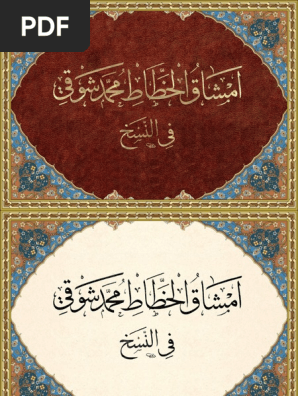 PDF
امْشَاقُ الْخَطَّاطِ مُحَمَّد شَوْقِي
فِي النَّسْخِ
امْشَاقُ الْخَطَّاطِ مُحَمَّد شَوْقِي
فِي النَّسْخِ